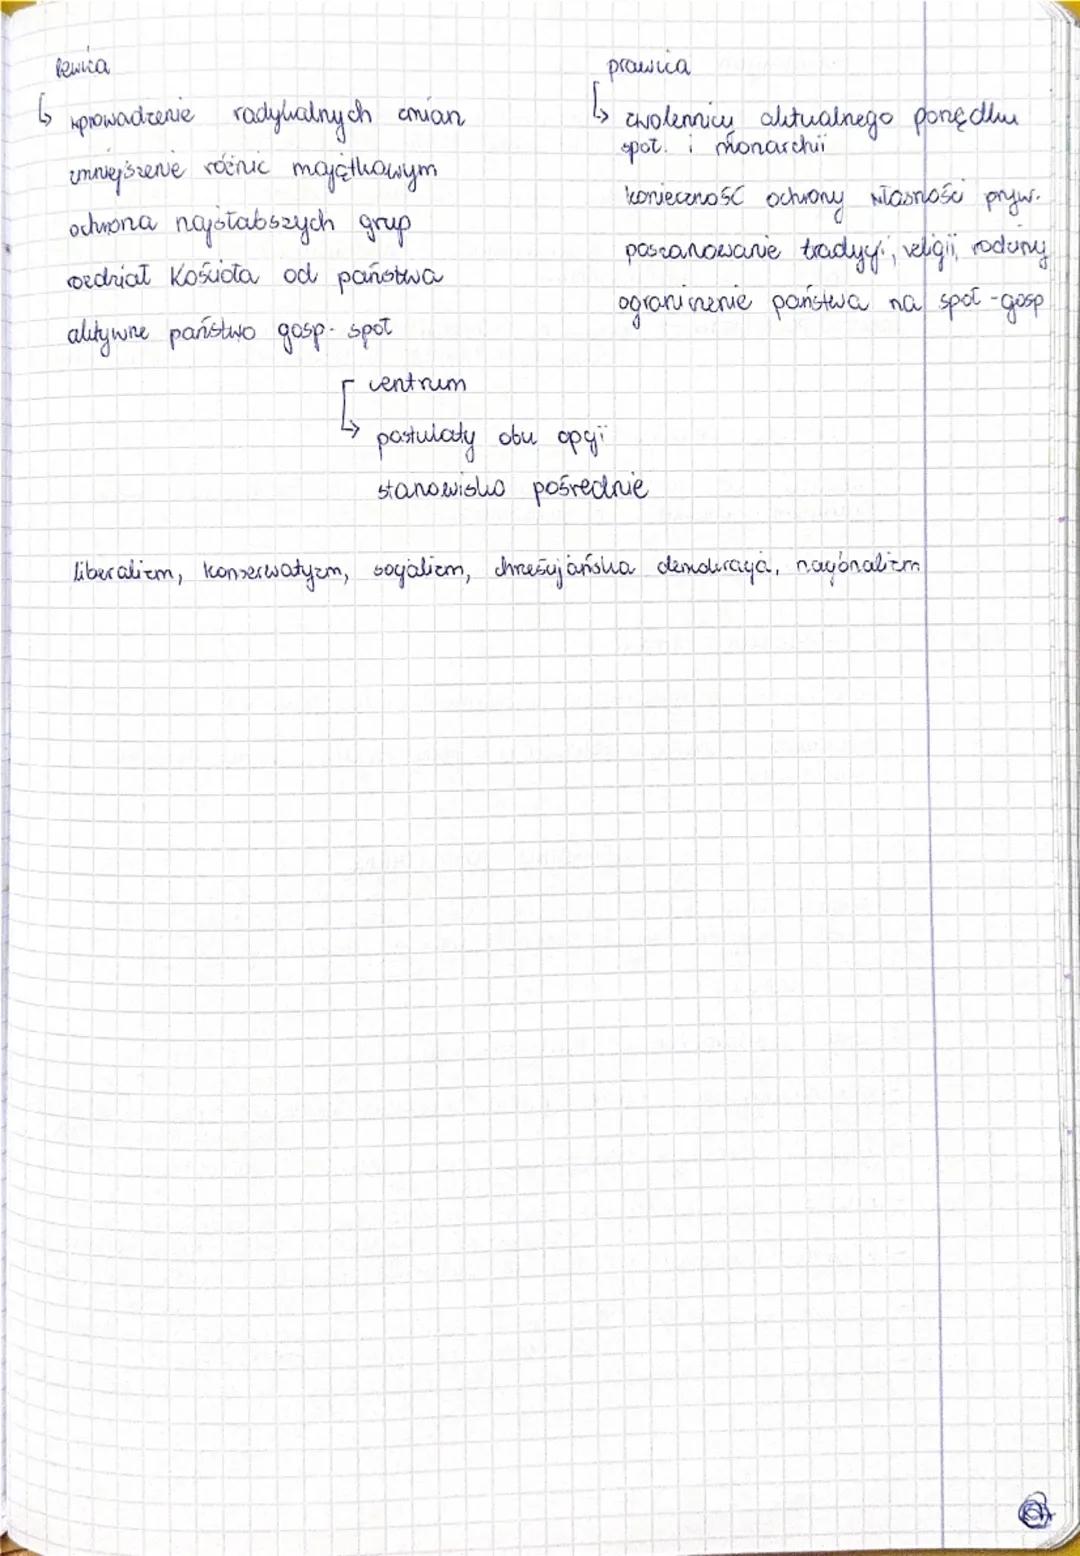 lewica
↳ wprowadzenie radykalnych zmian
zmniejszenie różnic majątkowym
ochrona najsłabszych grup
rozdział Kościoła od państwa
aktywne państwo gosp.-społ
prawica
↳ zwolennicy aktualnego porządku
społ. i monarchii
konieczność ochrony własności pryw.
poszanowanie tradycji, religii, rodziny
ograniczenie państwa na społ-gosp
centrum
↳ postulaty obu opcji
stanowisko pośrednie
liberalizm, konserwatyzm, socjalizm, chrześcijańska demokracja, nacjonalizm